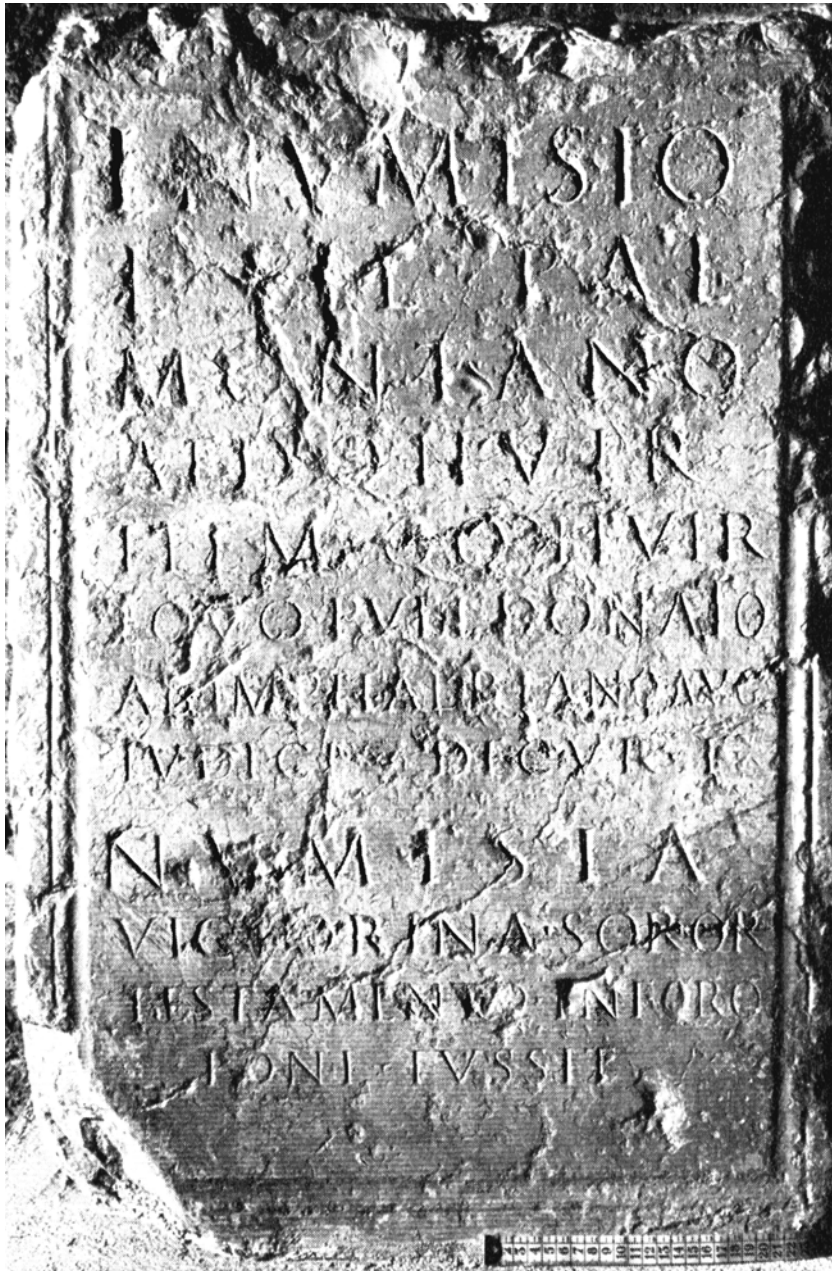 L·NVMISIO
L·FIL·PAL
MONTANO
AED·Q·IIVIR
ITEM·Q·IIVIR
EQVO·PVBL·DONATO
AB·IMP·HADRIANO·AVG
IVDICI·DECVR·I
NVMISIA
VICTORINA·SOROR
TESTAMENTO·IN·FORO
PONI·IVSSIT